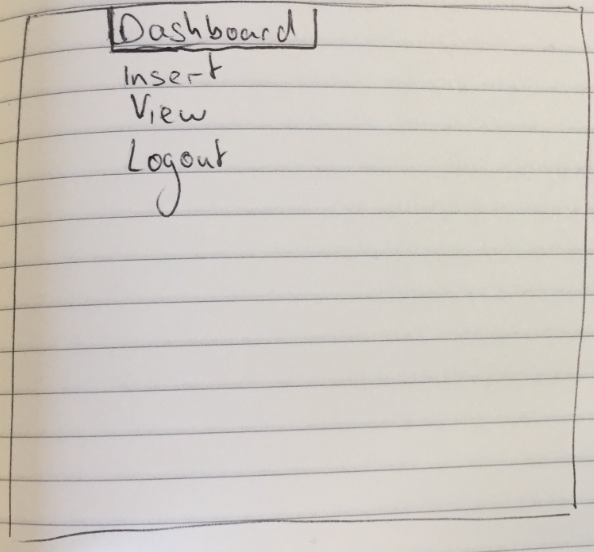 Dashboard
Insert
View
Logout